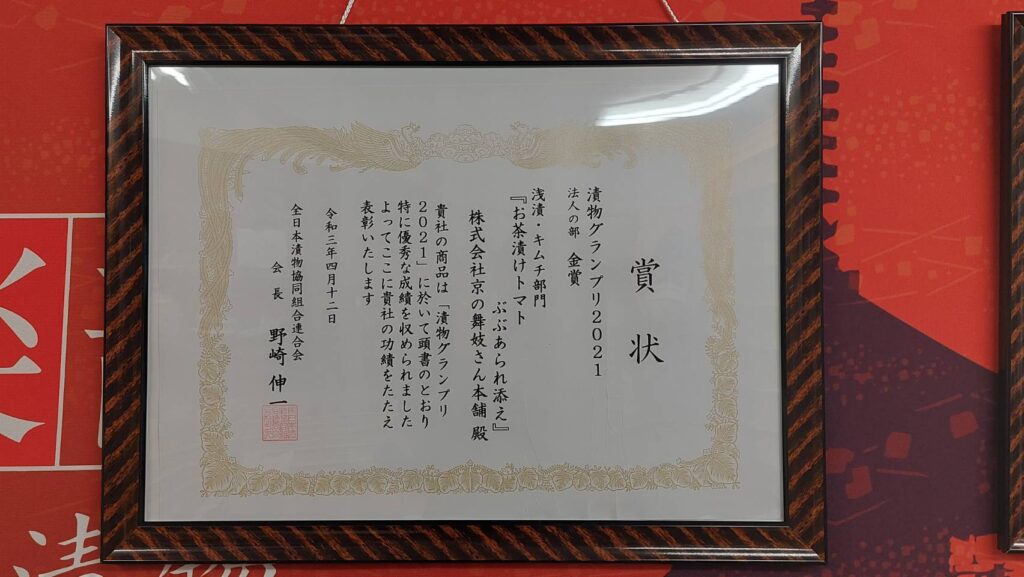 賞状
漬物グランプリ2021
法人の部　金賞
浅漬・キムチ部門
『お茶漬けトマト
ぶぶあられ添え』
株式会社京の舞妓さん本舗 殿
貴社の商品は「漬物グランプリ
2021」に於いて頭書のとおり
特に優秀な成績を収められました
よってここに貴社の功績をたたえ
表彰いたします
令和三年四月十二日
全日本漬物協同組合連合会
会長　野崎伸一
漬物